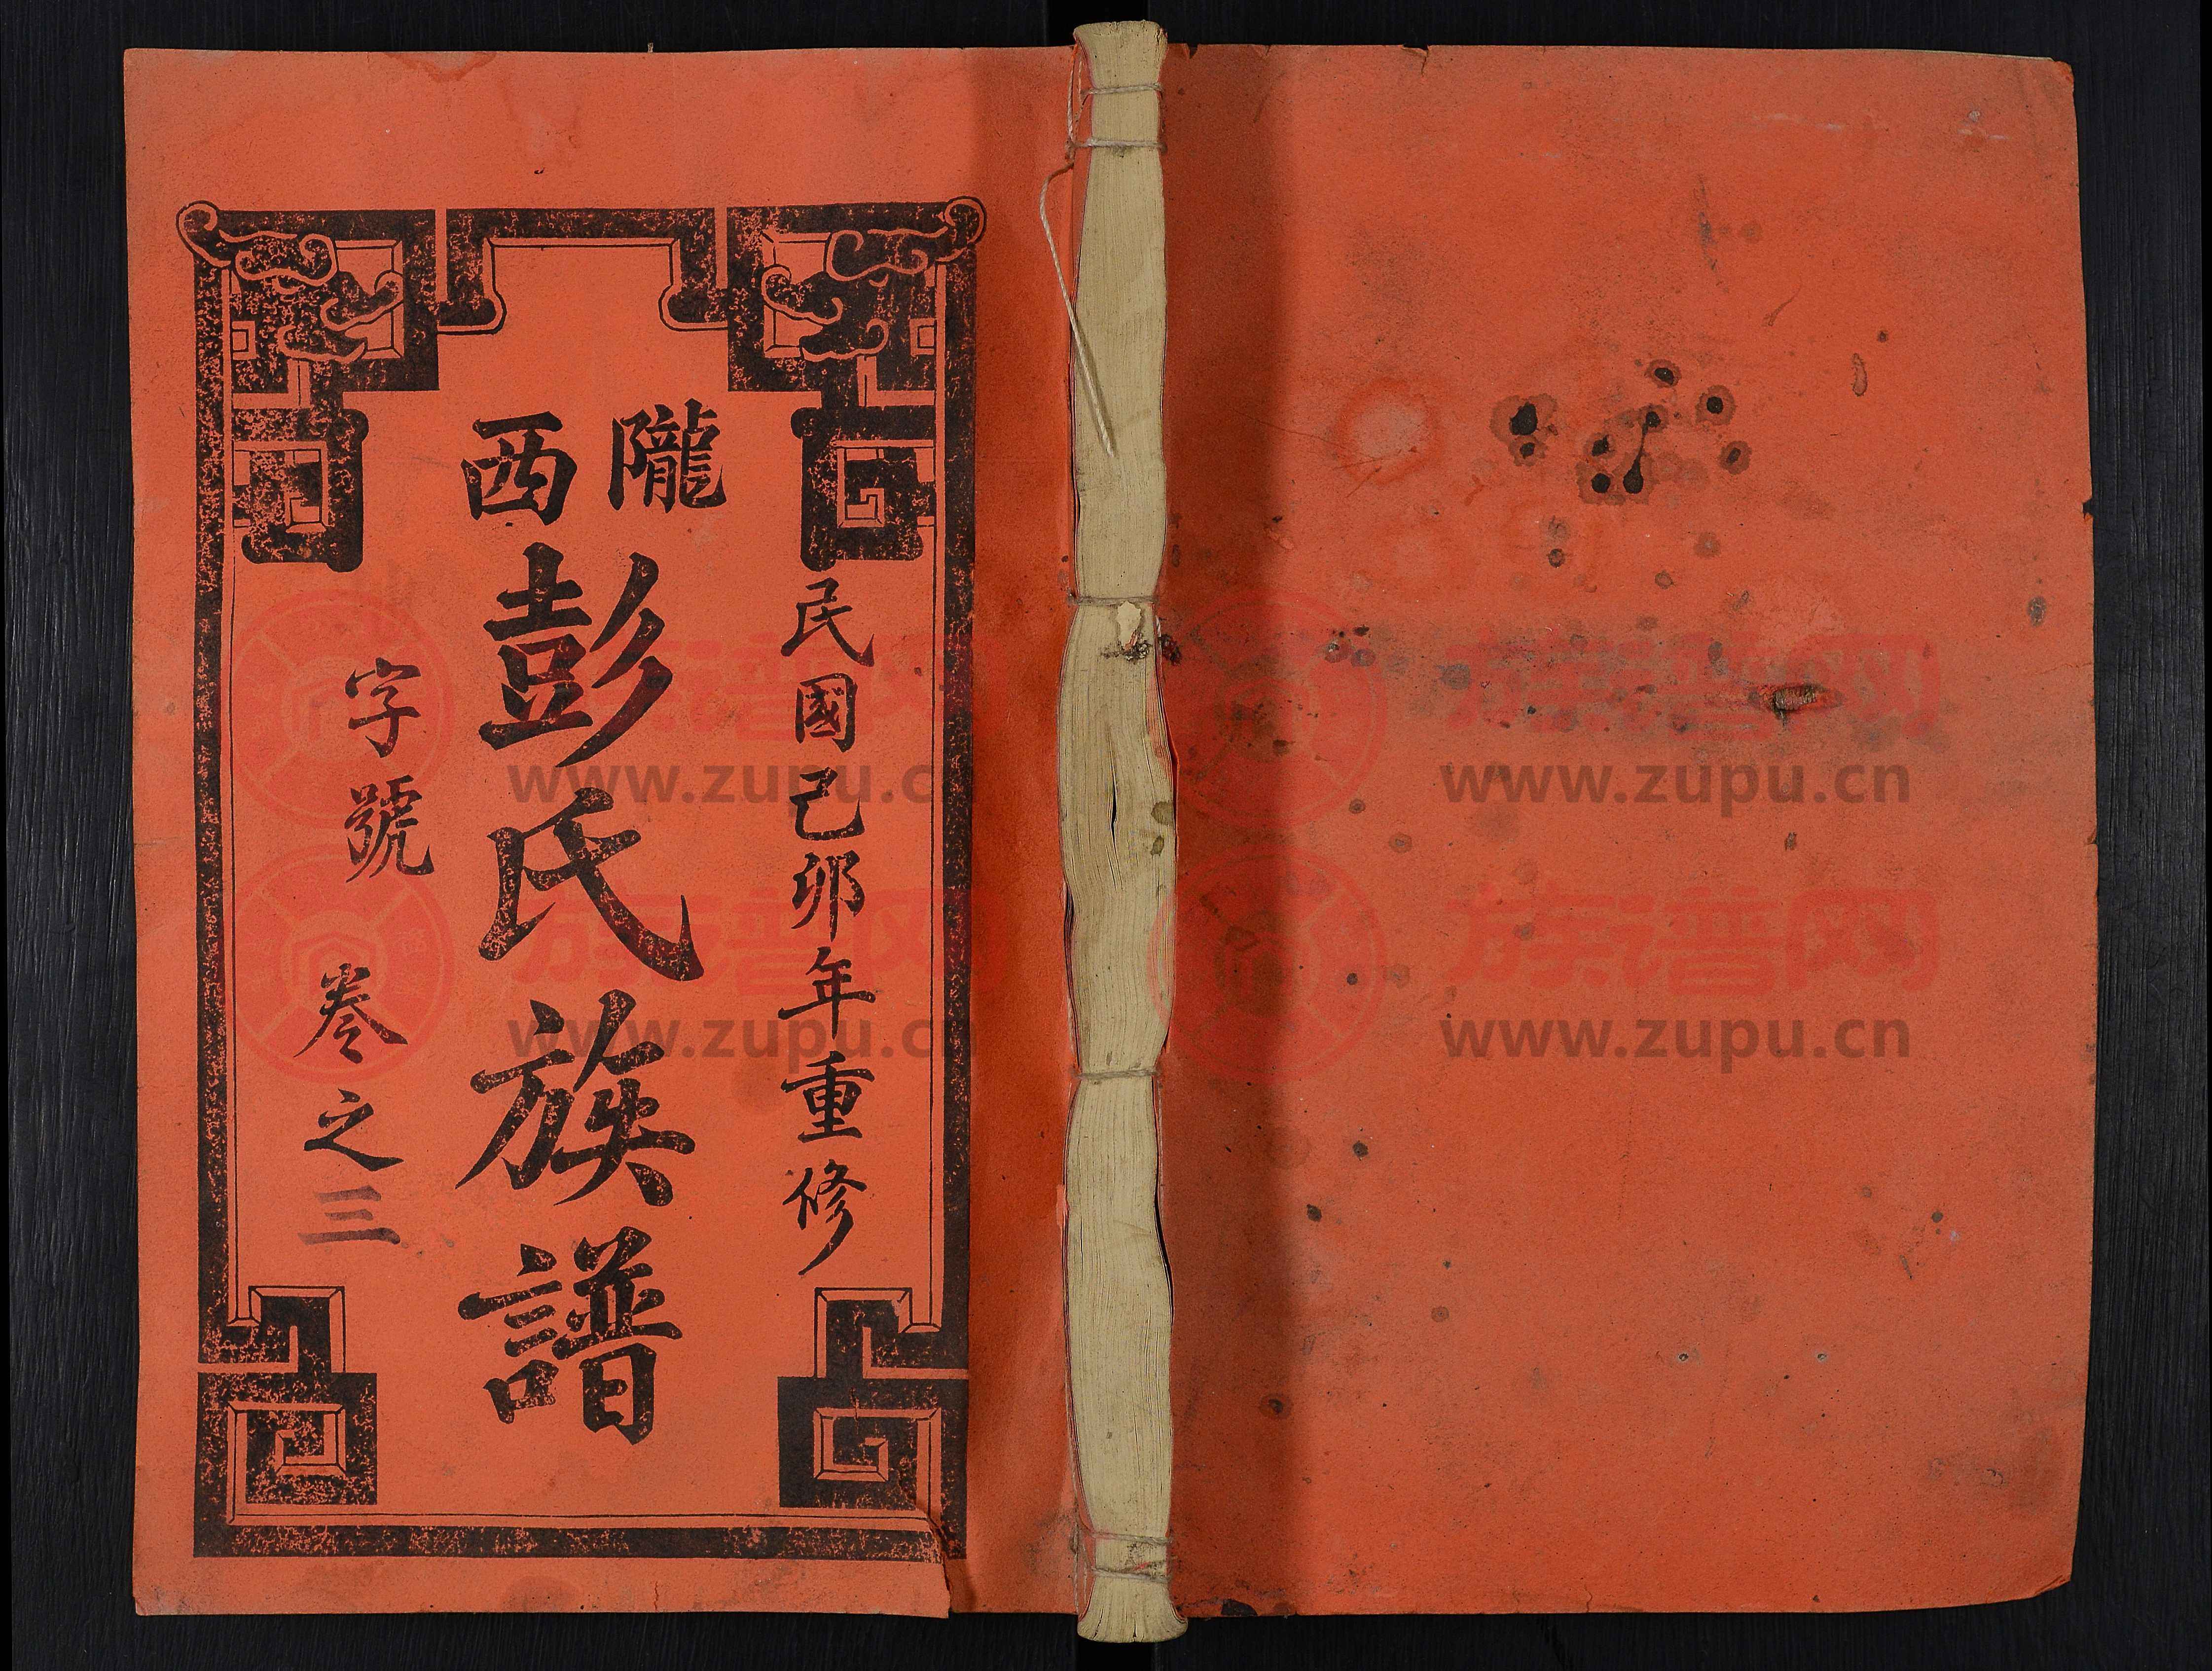 民國己卯年重修
隴西
彭氏族譜
字號
卷之三
族谱网
www.zupu.cn
族谱网
www.zupu.cn
族谱网
www.zupu.cn
族谱网
www.zupu.cn